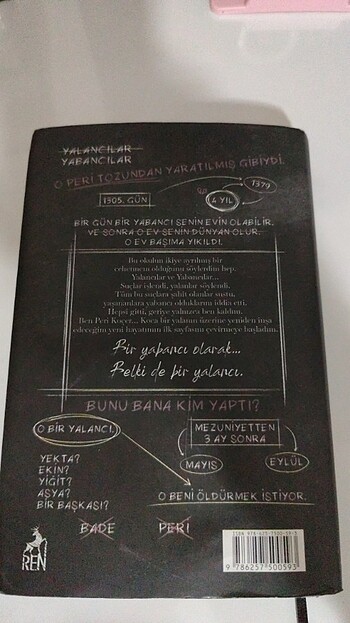 YALANCILAR
YABANCILAR
O PERİ TOZUNDAN YARATILMIŞ GİBİYDİ.
1379
1305. GÜN
4 YIL
BİR GÜN BİR YABANCI SENİN EVİN OLABİLİR.
VE SONRA O EV SENİN DÜNYAN OLUR.
O EV BAŞIMA YIKILDI.
Bu okulun ikiye ayrılmış bir
cehennem olduğunu söylerdim hep.
Yalancılar ve Yabancılar...
Suçlar işlendi, yalanlar söylendi.
Tüm bu suçlara şahit olanlar sustu,
yaşananlara yabancı olduklarını iddia etti.
Hepsi gitti, geriye yalnızca ben kaldım.
Ben Peri Koçer... Koca bir yalanın üzerine yeniden inşa
edeceğim yeni hayatımın ilk sayfasını çevirmeye başladım.
Bir yabancı olarak...
Belki de bir yalancı.
BUNU BANA KİM YAPTI?
O BİR YALANCI.
MEZUNİYETTEN
3 AY SONRA
MAYIS
EYLÜL
YEKTA?
EKİN?
YİĞİT?
ASYA?
BİR BAŞKASI?
O BENİ ÖLDÜRMEK İSTİYOR.
BADE
PERİ
REN
9 786257 500593